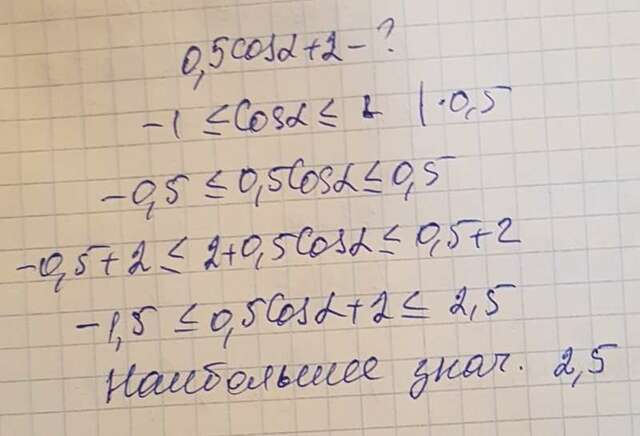 0,5cosα+2-?
-1 ≤ Cosα ≤ 1 | · 0,5
-0,5 ≤ 0,5Cosα ≤ 0,5
-0,5+2 ≤ 2+0,5Cosα ≤ 0,5+2
-1,5 ≤ 0,5Cosα+2 ≤ 2,5
Наибольшее знач. 2,5